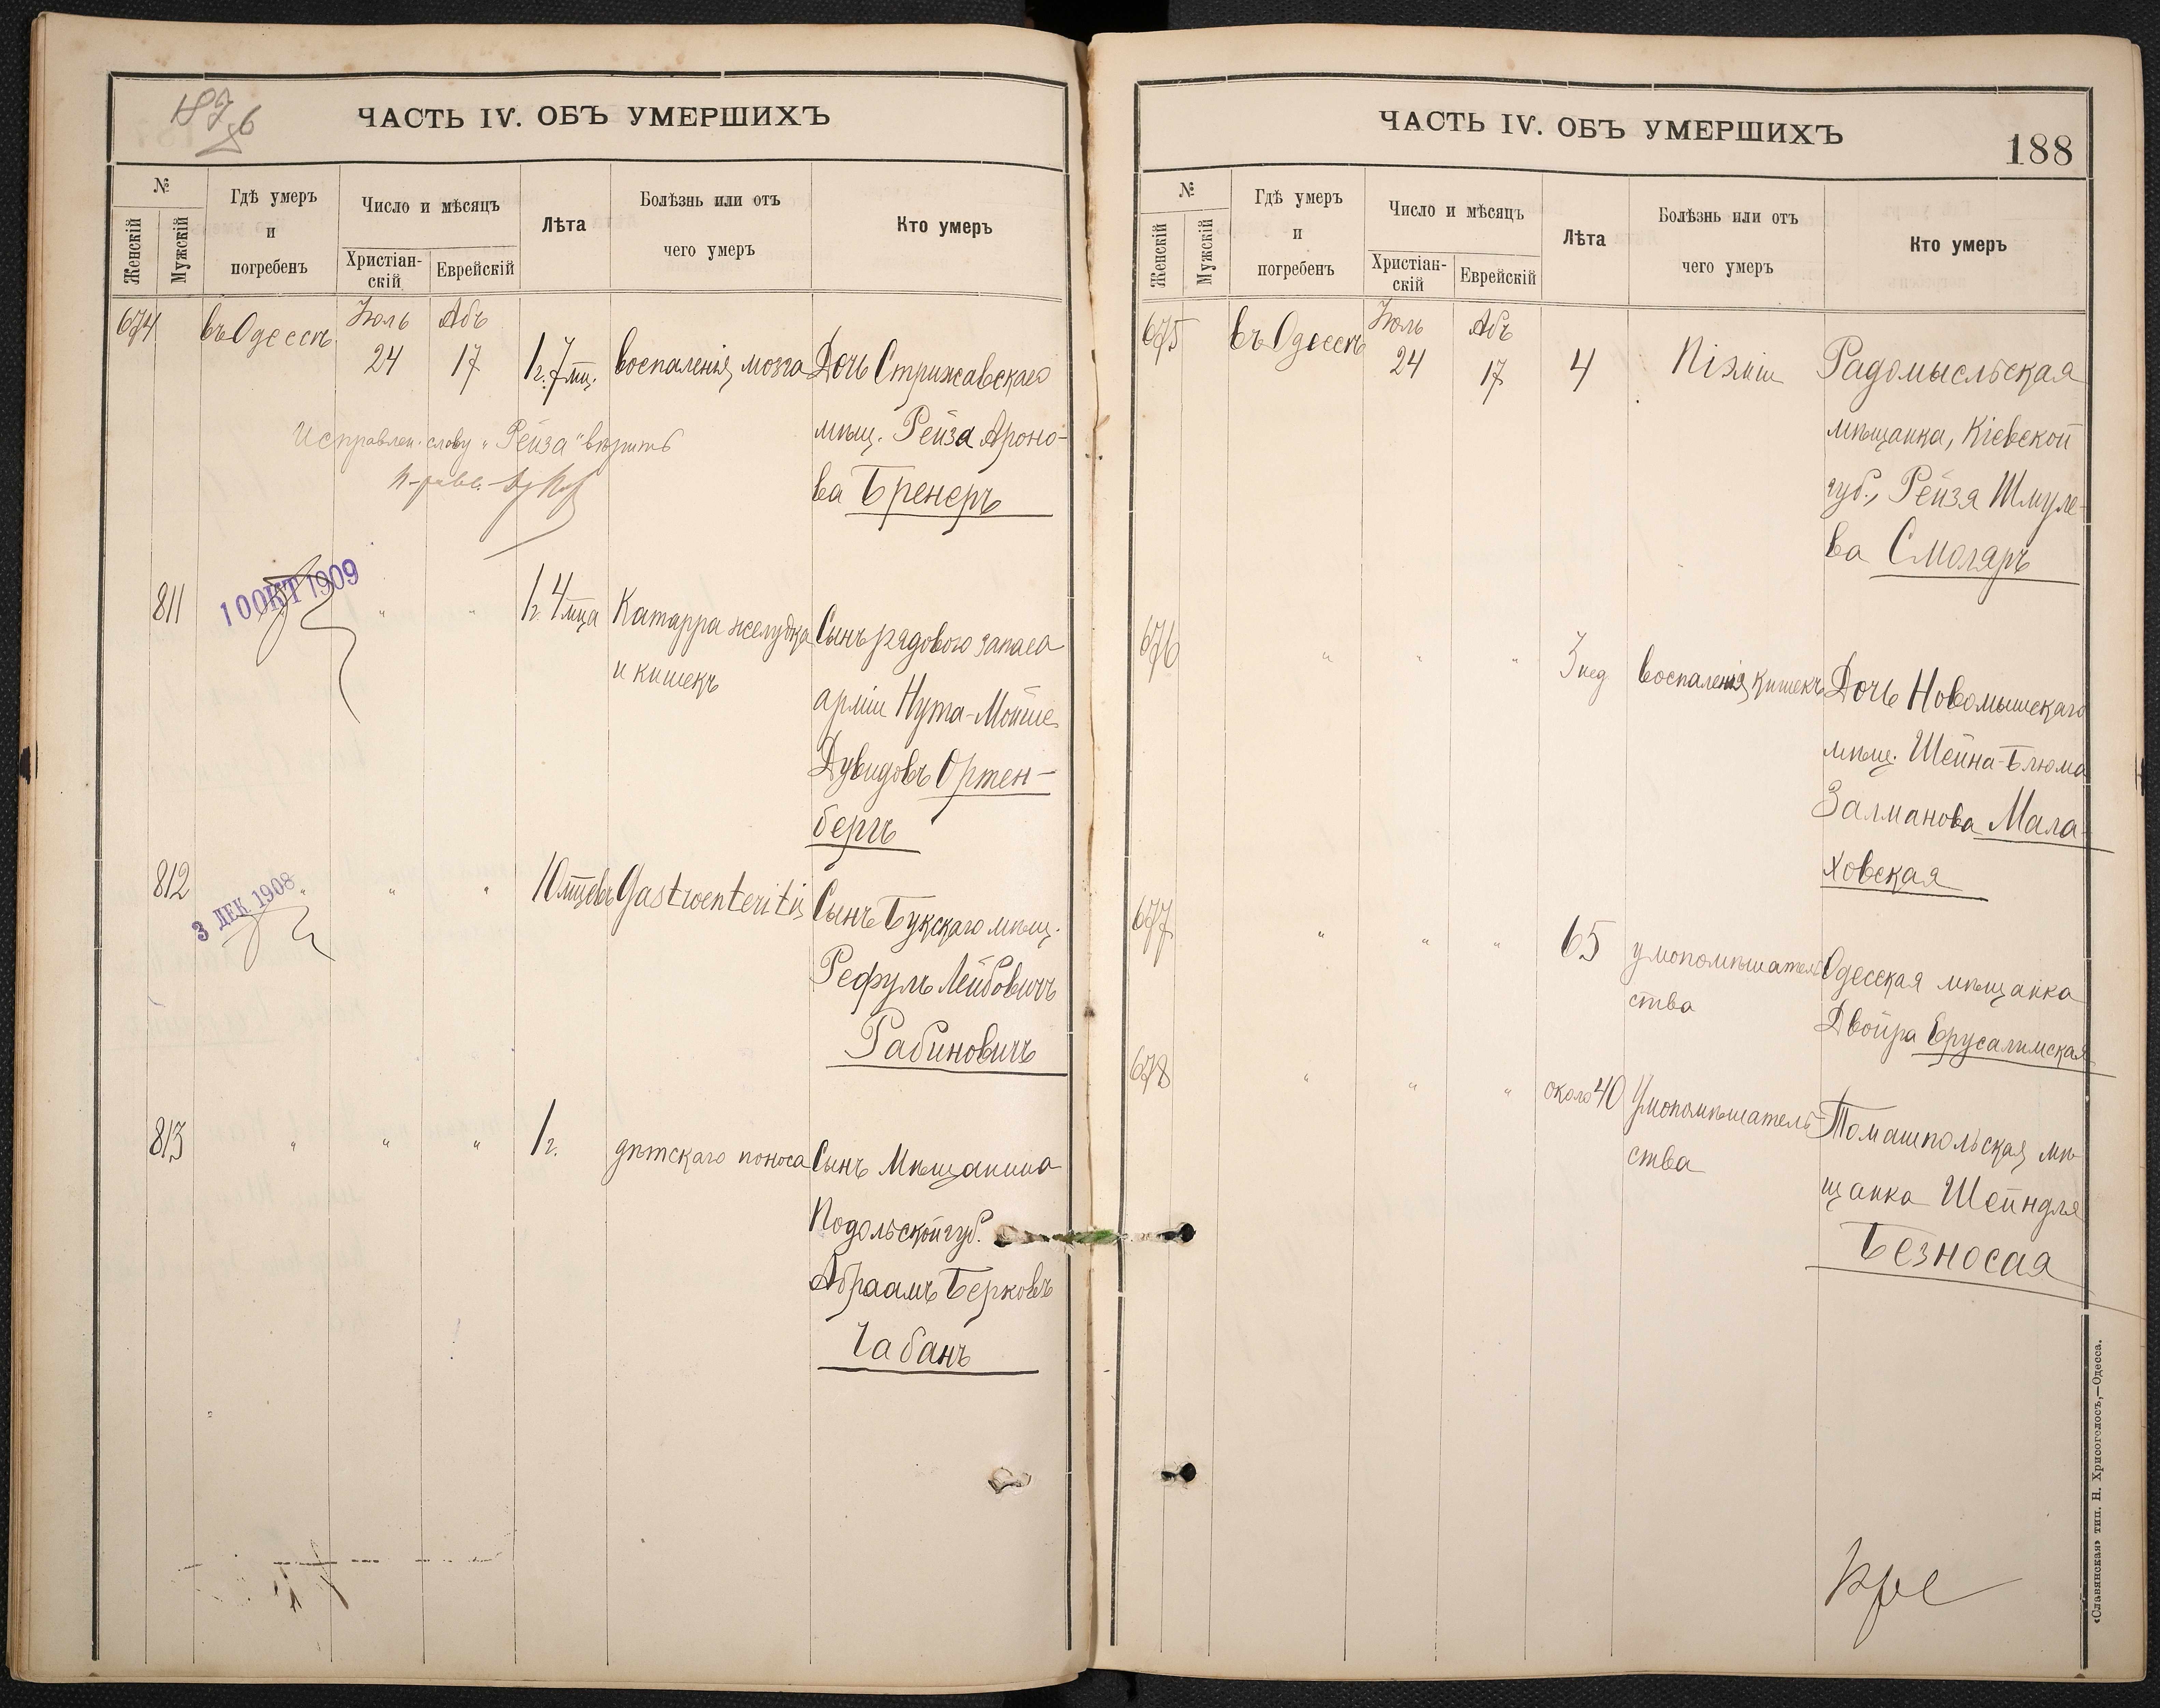 187
ЧАСТЬ IV. ОБЪ УМЕРШИХЪ
№
Женскій
Мужскій
Гдѣ умеръ
и
погребенъ
Число и мѣсяцъ
Христіан-
скій
Еврейскій
Лѣта
Болѣзнь или отъ
чего умеръ
Кто умеръ
674 въ Одессѣ Іюль Абъ
24 17 1 г. 7 мц. воспаленія мозга Дочь Стрижавскаго
мѣщ. Рейза Ароно-
ва Бренеръ
Исправлен. слову „Рейза" вѣрить
811 1 г. 4 мца Катарра желудка Сынъ рядового запаса
и кишекъ
арміи Нута-Мойше
Дувидовъ Ортен-
бергъ
1 ОКТ 1909
812 " " " 10 мцевъ Gastroenteritis Сынъ Букскаго мѣщ.
Рефулъ Лейбовичъ
Рабиновичъ
3 ДЕК 1908
813 " " " 1 г. дѣтскаго поноса Сынъ Мѣщанина
Подольской губ.
Абраамъ Берковъ
Чабанъ
ЧАСТЬ IV. ОБЪ УМЕРШИХЪ
188
№
Женскій
Мужскій
Гдѣ умеръ
и
погребенъ
Число и мѣсяцъ
Христіан-
скій
Еврейскій
Лѣта
Болѣзнь или отъ
чего умеръ
Кто умеръ
675 въ Одессѣ Іюль Абъ
24 17 4 Радомысльская
мѣщанка, Кіевской
губ., Рейзя Шмуле-
ва Смоляръ
676 " " " 3 нед. воспаленія кишекъ Дочь Новомышскаго
мѣщ. Шейна-Блюма
Залманова Мала-
ховская
677 " " " 65 умопомѣшатель- Одесская мѣщанка
ства
Двойра Ерусалимская
678 " " " около 40 Умопомѣшатель- Томашпольская мѣ-
ства
щанка Шейндля
Безносая
«Славянская» тип. Н. Хрисогелосъ,—Одесса.